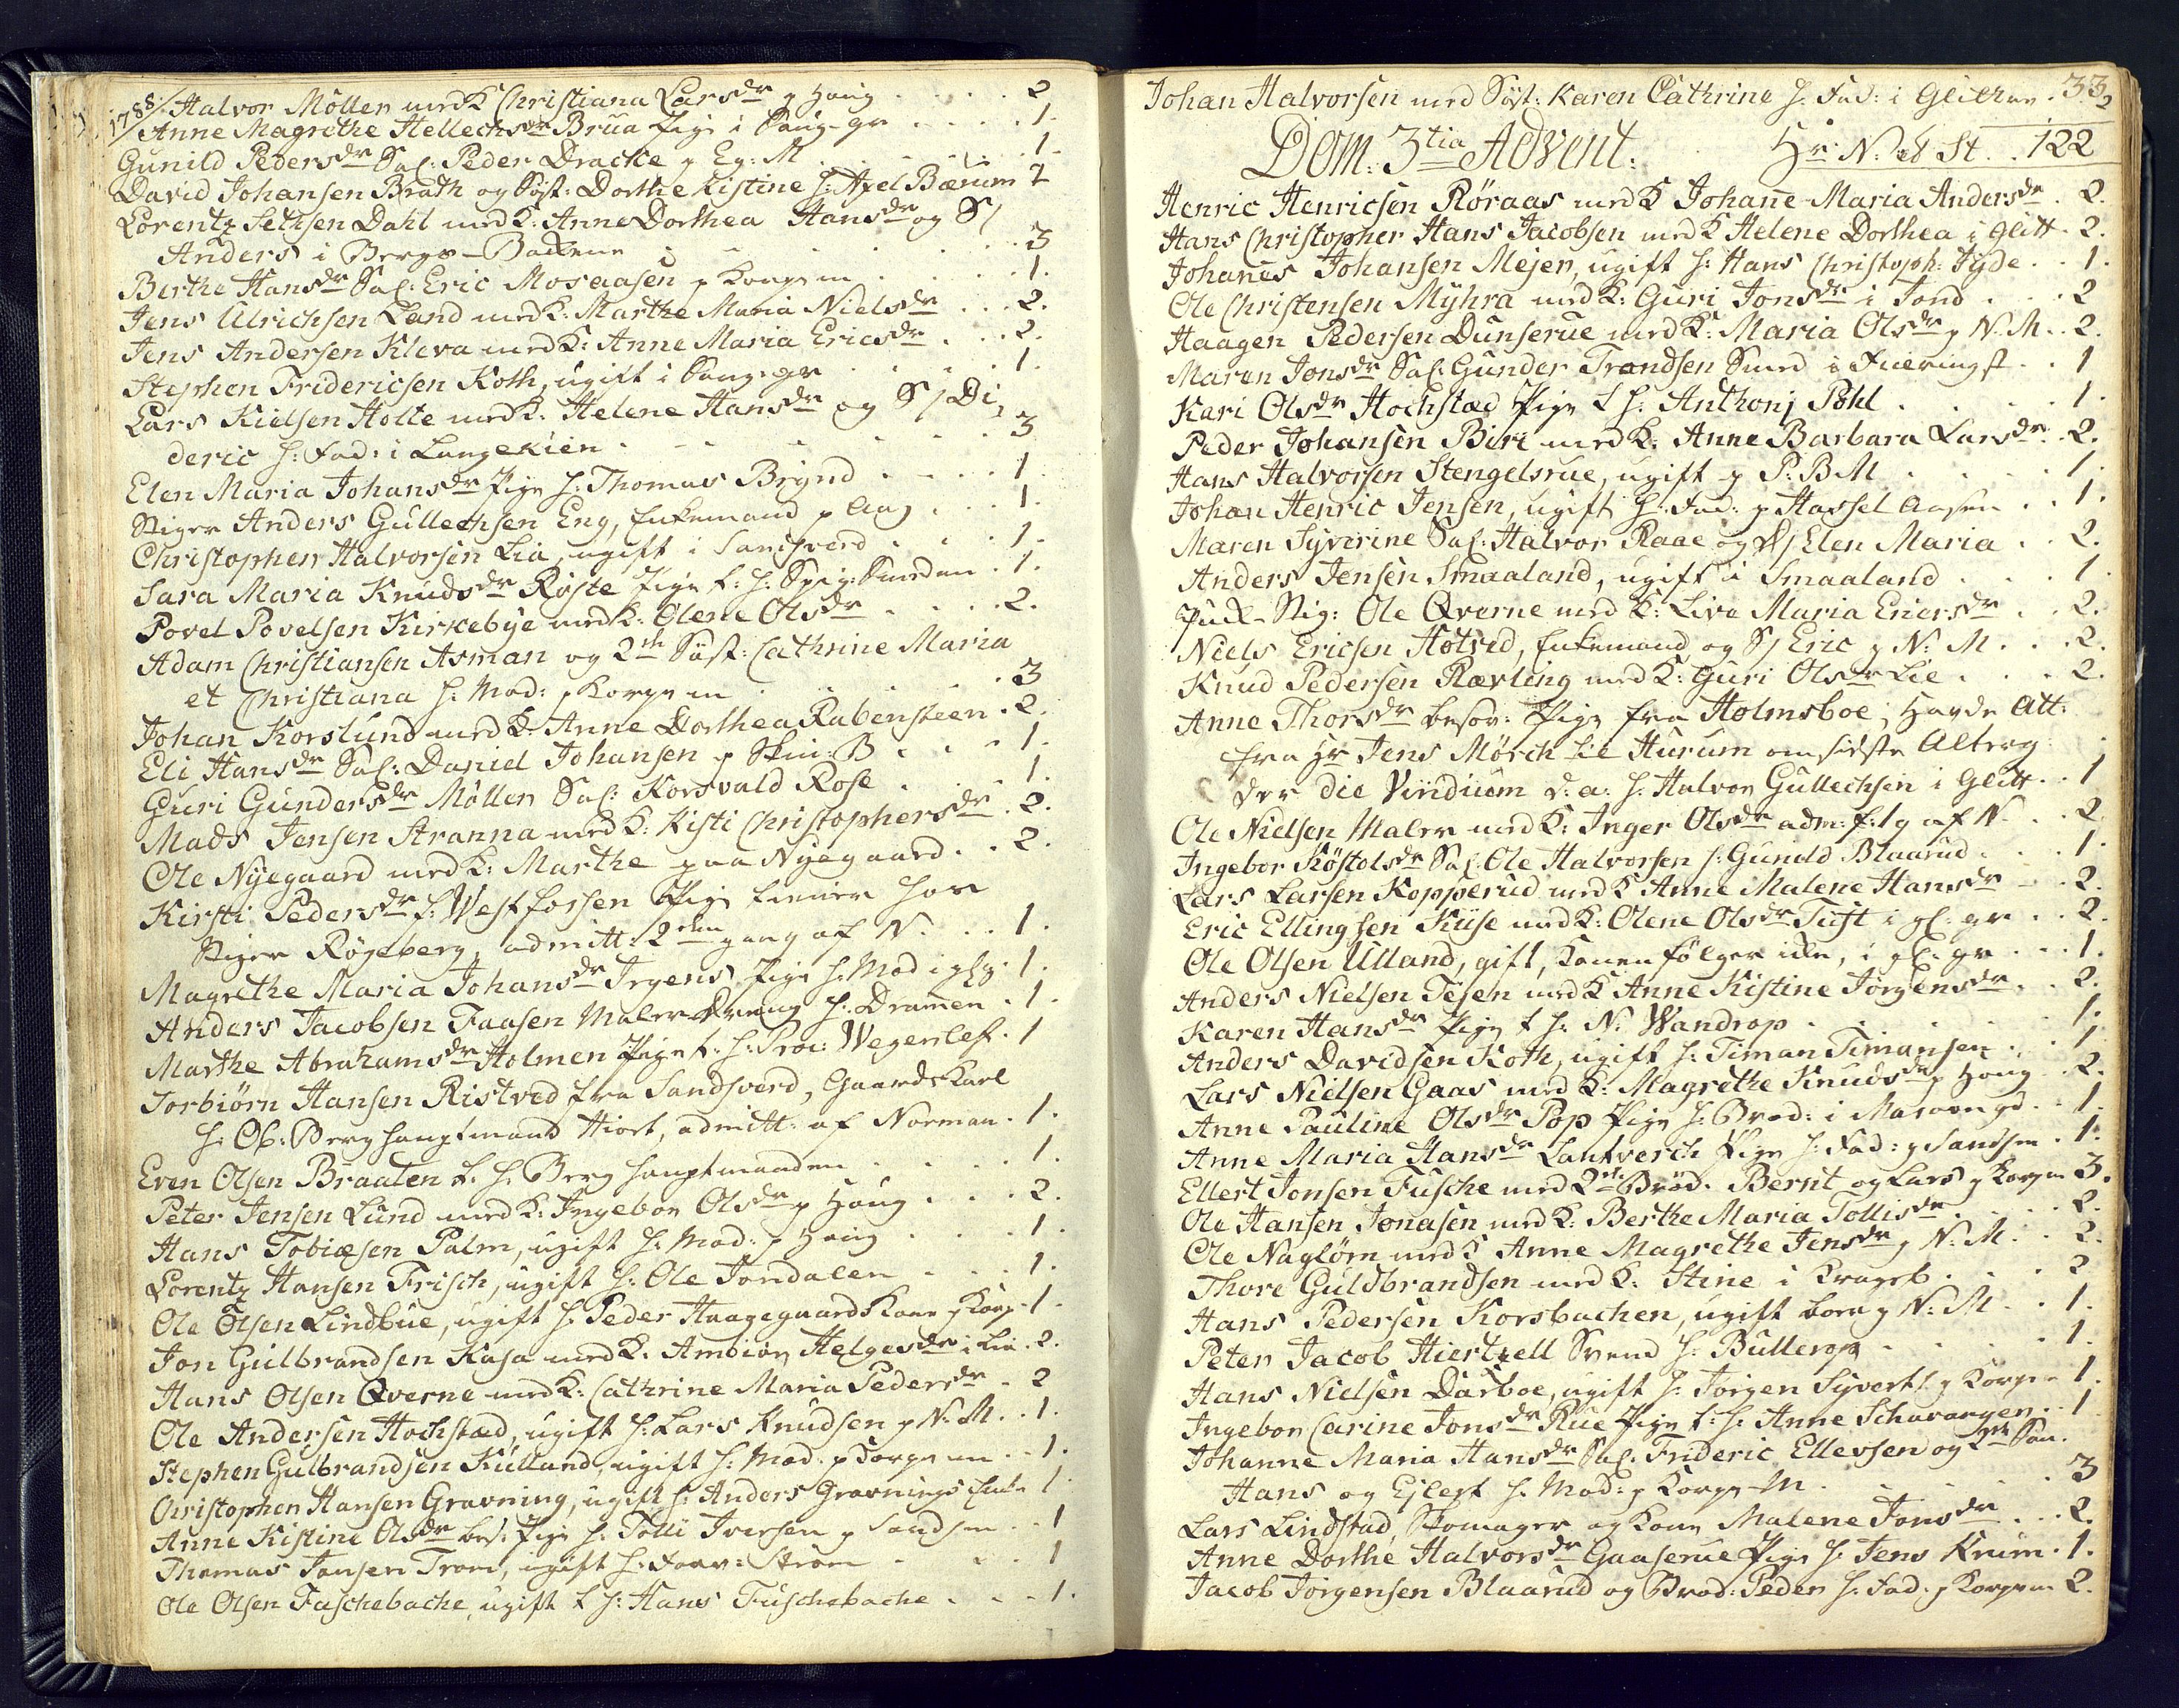 1788. Halvor Möller med K Christiana Larsdr p Houg . . . . 2
Anne Magrethe Hellechsdr Brua Pige i Saug-gr . . . . 1.
Gunild Pedersdr Sal: Peder Dracke p Eg: M . . . . 1.
David Johansen Brath og Söst: Dorthe Kistine h: Axel Bærum 2
Lorentz Sethsen Dahl med K: Anne Dorthea Hansdr og S/
Anders i Bergs-Bakene . . . . 3
Berthe Hansdr Sal: Eric Mosaasen p Korpem . . . . 1.
Jens Ulrichsen Land med K: Marthe Maria Nielsdr . . . 2.
Jens Andersen Kleva med K: Anne Maria Ericsdr . . . 2.
Stephen Fridericsen Koth, ugift i Saug-gr . . . . 1.
Lars Kielsen Holte med K: Helene Hansdr og S/ Di,
deric h: Fad: i Langekien . . . . 3
Elen Maria Johansdr Pige h: Thomas Brynd . . . . 1
Stiger Anders Gullechsen Eng, Enkemand p Aas . . . 1.
Christopher Halvorsen Lia, ugift i Sandsverd . . . 1.
Sara Maria Knudsdr Röste Pige t: h: Spig: Smeden . 1.
Povel Povelsen Kirkebye med K: Olene Olsdr . . . . 2.
Adam Christiansen Asman og 2de Söst: Cathrine Maria
et Christiana h: Mod: p Korpem . . . . 3
Johan Korslund med K: Anne Dorthea Rabensteen . 2.
Eli Hansdr Sal: Daniel Johansen p Skin: B . . . 1.
Guri Gundersdr Möller Sal: Korsvald Rose . . . . 1.
Mads Jensen Stranna med K: Kisti Christophersdr . 2.
Ole Nyegaard med K: Marthe paa Nyegaard . . 2.
Kirsti Pedersdr f: Vestfossen Pige tiener hos
Stiger Rögeberg, admitt: 2den gang af N. . . 1.
Magrethe Maria Johansdr Irgens Pige h: Mod i glg. 1.
Anders Jacobsen Faasen Maler dreng h: Dramen . 1.
Marthe Abrahamsdr Holmen Pige t: h: Proc: Wegerslef . 1
Torbiörn Hansen Ristved fra Sandsverd, Gaardskarl
h: Ob: Berghauptmand Hiort, admitt: af Norman . 1.
Even Olsen Braaten t: h: Berg hauptmanden . . . . 1.
Peter Jensen Lund med K: Ingebor Olsdr p Houg . . . 2.
Hans Tobiæsen Palm, ugift h: Mod: p Houg . . . 1.
Lorentz Hansen Frisch, ugift h: Ole Jondalen . . . 1.
Ole Olsen Lindbüe, ugift h: Peder Haagegaards Kone p Korp . 1.
Jon Gulbrandsen Kasa med K: Ambiör Helgesdr i Lia . 2.
Hans Olsen Qverne med K: Cathrine Maria Pedersdr . 2
Ole Andersen Hochstad, ugift h: Lars Knudsen p N: M . . 1.
Stephen Gulbrandsen Külland, ugift h: Mod: p Korpem . . 1.
Christopher Hansen Gravning, ugift h: Anders Gravnings Enke 1.
Anne Kistine Olsdr bes: Pige h: Tolli Iversen p Sandsen . . 1
Thomas Jansen Tron, ugift h: Forv: Ström . . . 1
Ole Olsen Fuschebache, ugift t h: Hans Fuschebache . . . 1.
Johan Halvorsen med Söst: Karen Cathrine h: Fad: i Glitren . 33,
Dom: 3tia Advent: Hr N: & St . . 122
Henric Henricsen Röraas med K Johane Maria Andersdr . 2.
Hans Christopher Hans Jacobsen med K Helene Dorthea i Glitt . 2.
Johanes Johansen Mejer, ugift h: Hans Christoph: Tyde . . 1.
Ole Christensen Myhra med K: Guri Jonsdr i Jond . . . 2
Haagen Pedersen Dunserue med K: Maria Olsdr p N: M . . 2.
Maren Jonsdr Sal: Gunder Trondsen Smed i Fueringst . . 1
Kari Olsdr Hochstad Pige t h: Anthonj Pohl . . . . 1.
Peder Johansen Biri med K: Anne Barbara Larsdr . . 2.
Hans Halvorsen Stengelsrue, ugift p P: B M . . . . 1.
Johan Henric Jensen, ugift h: Fad: p Hassel Aasen . . 1.
Maren Syverine Sal: Halvor Raae og D/ Elen Maria . . 2.
Anders Jensen Smaaland, ugift i Smaaland . . . 1.
Puck-Stig: Ole Qverne med K: Live Maria Enersdr . . 2.
Niels Ericsen Hotved, Enkemand og S/ Eric p N: M . . . 2.
Knud Pedersen Rævling med K: Guri Olsdr Lie . . . 2.
Anne Thorsdr besov: Pige fra Holmsboe, havde Att:
fra Hr Jens Mörch til Hurum om sidste Alterg:
der die Viridium d: a: h: Halvor Gullechsen i Glitt . . 1
Ole Nielsen Maler med K: Inger Olsdr adm: f: 1 g af N . . 2
Ingebor Köstolsdr Sal: Ole Halvorsen h: Gunild Blaarud . . 1.
Lars Larsen Kopperud med K Anne Malene Hansdr . . 2.
Eric Ellingsen Kiise med K: Olene Olsdr Tuft i gl: gr . . 2.
Ole Olsen Ulland, gift, Konen fölger icke, i gl: gr . . . 1.
Anders Nielsen Tesen med K Anne Kistine Jörgensdr . . 2.
Karen Hansdr Pige t h: N: Wandrop . . . . 1.
Anders Davidsen Koth, ugift h: Timan Timansen . . . 1
Lars Nielsen Gaas med K: Magrethe Knudsdr p Houg . . 2.
Anne Pauline Olsdr Pop Pige h: Brod: i Mavorngd . . 1.
Anne Maria Hansdr Lantverch Pige h: Fad: p Sandsen . 1.
Ellert Jonsen Fusche med 2de Bröd: Bernt og Lars p Korpem 3.
Ole Hansen Jonasen med K: Berthe Maria Tollisdr . . . 2.
Ole Naglörn med K Anne Magrethe Jensdr p N: M . . 2.
Thore Guldbrandsen med K: Stine i Krageb . . . . 2
Hans Pedersen Korsbachen, ugift borer N: M . . 1.
Peter Jacob Hiertzell Svend h: Bullerop . . . . 1.
Hans Nielsen Darboe, ugift h: Jörgen Syverts: p Korpe . 1.
Ingebor Carine Jonsdr Rüe Pige t: h: Anne Schavangen . . 1
Johanne Maria Hansdr Sal: Frideric Ellevsen og 2de Sön:
Hans og Ejlert h: Mod: p Korpe-M . . . . 3
Lars Lindstad, Skomager og Kone Malene Jonsdr . . . 2.
Anne Dorthe Halvorsdr Gaaserue Pige h: Jens Krum . 1.
Jacob Jörgensen Blaarud og Brod: Peder h: Fad: p Korpem 2.